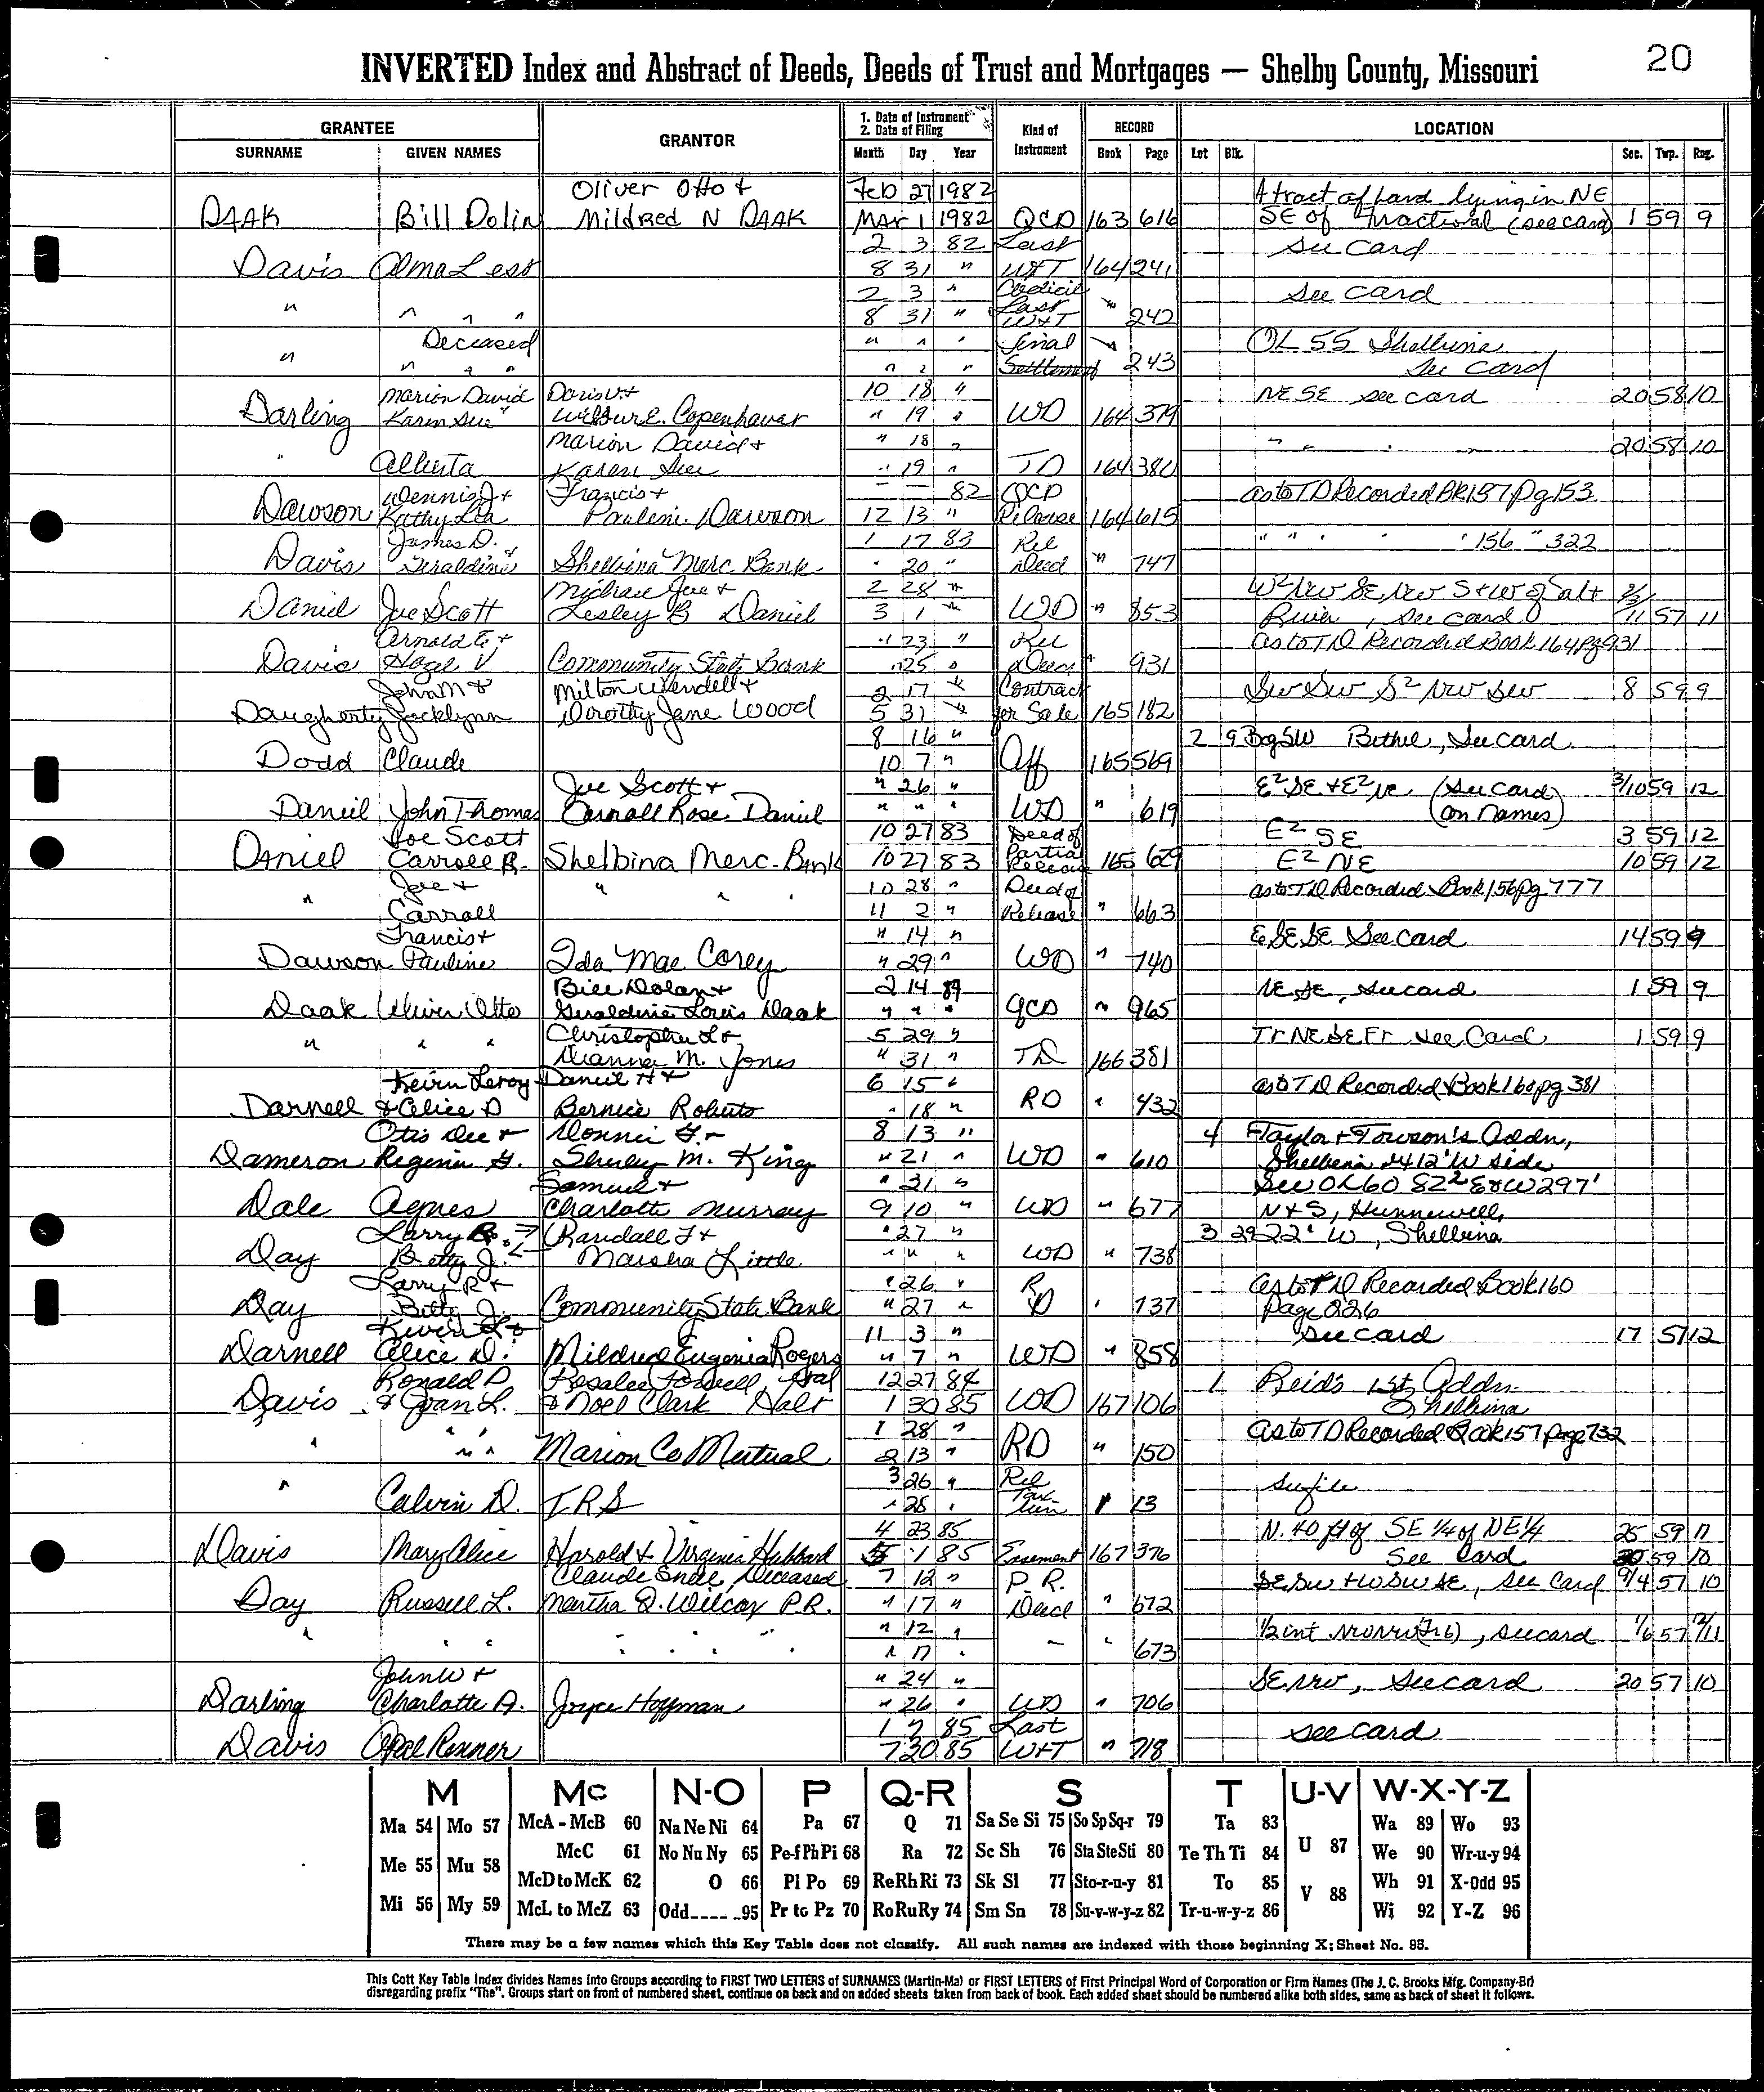 20
INVERTED Index and Abstract of Deeds, Deeds of Trust and Mortgages — Shelby County, Missouri
GRANTEE GRANTOR 1. Date of Instrument 2. Date of Filing Kind of Instrument RECORD LOCATION
SURNAME GIVEN NAMES Month Day Year Book Page Lot Blk. Sec. Twp. Rng.
Oliver Otto + Feb 27 1982 A tract of Land lying in NE
DAAK Bill Dolin Mildred N DAAK Mar 1 1982 QCD 163 616 SE of fractional (see card) 1 59 9
2 3 82 Last See Card
Davis Alma Less 8 31 " W+T 164 241
2 3 " Codicil See Card
" " " " 8 31 " Last W+T " 242
Deceased " " " Final " OL 55 Shelbina
" " " " " 2 " Settlement 243 See Card
Marion David Doris V + 10 18 " NE SE see card 20 58 10
Darling Karen Sue " Wilbur E. Copenhaver " 19 " WD 164 379
Marion David + " 18 " " " " " 20 58 10
" Alberta Karen Sue " 19 " TD 164 380
Dennis J + Francis + — — 82 QCD as to TD Recorded BK 157 Pg 153
Dawson Kathy Lea Pauline Dawson 12 13 " Release 164 615
James D. 1 17 83 Rel " " " " 156 " 322
Davis Geraldine Shelbina Merc Bank " 20 " Deed " 747
Michael Joe + 2 28 " W2 NW SE, NW S+W of Salt 2/
Daniel Joe Scott Lesley B Daniel 3 1 " WD " 853 River, see card 11 57 11
Arnold E + " 23 " Rel as to TD Recorded Book 164 Pg 931
Davis Hazel V Community State Bank " 25 " Deed " 931
John M + Milton Wendell + 2 17 " Contract SW SW S2 NW SW 8 59 9
Daugherty Jacklynn Dorothy Jane Wood 5 31 " for Sale 165 182
8 16 " 2 9 Bg SW Bethel, See Card
Dodd Claude 10 7 " Aff 165 569
Joe Scott + " 26 " E2 SE + E2 NE (See Card 3/10 59 12
Daniel John Thomas Carroll Rose Daniel " " " WD " 619 on names)
Joe Scott 10 27 83 Deed of E2 SE 3 59 12
DANIEL Carroll R. Shelbina Merc. Bank 10 27 83 Partial Release 165 629 E2 NE 10 59 12
Joe + " " " 10 28 " Deed of as to TD Recorded Book 156 Pg 777
" Carroll 11 2 " Release " 663
Francis + " 14 " E SE SE See Card 14 59 9
Dawson Pauline Ida Mae Corey " 29 " WD " 740
Bill Dolan + 2 14 84 NE SE, see card 1 59 9
Daak Oliver Otto Geraldine Lois Daak " " " QCD " 965
Christopher L + 5 29 " Tr NE SE Fr See Card 1 59 9
" " " Dianna M. Jones " 31 " TD 166 381
Kevin Leroy Daniel H + 6 15 " as to TD Recorded Book 160 pg 381
Darnell & Alice D Bernice Roberts " 18 " RD " 432
Otis Dee + Donnie F. + 8 13 " 4 Taylor + Towson's Addn,
Dameron Regenia G. Shirley M. King " 21 " WD " 610 Shelbina 2412' W side
Samuel + " 31 " SW OL 60 822 E & W 297'
Dale Agnes Charlotte Murray 9 10 " WD " 677 N + S, Hunnewell
Larry R. Randall J + " 27 " 3 29 22' W, Shelbina
Day Betty J. Marsha Little " " " WD " 738
Larry R + " 26 " R as to TD Recorded Book 160
Day Betty J. Community State Bank " 27 " D " 737 Page 226
Kevin L + 11 3 " See card 17 57 12
Darnell Alice D. Mildred Eugenia Rogers " 7 " WD " 858
Ronald D. Rosalee Powell, etal 12 27 84 1 Reid's 1st Addn.
Davis & Joan L. & Noel Clark Halt 1 30 85 WD 167 106 Shelbina
" " " 1 28 " as to TD Recorded Book 157 page 732
" " Marion Co Mutual 2 13 " RD " 150
" 3 26 " Rel see file
Calvin D. I.R.S " 28 " Tax Lien " 13
4 23 85 N. 40 ft of SE 1/4 of NE 1/4 25 59 11
Davis Mary Alice Harold + Virginia Hubbard 5 1 85 Easement 167 376 See Card 30 59 10
Claude Snell, Deceased 7 12 " P.R. SE SW + W SW SE, See Card 9/4 57 10
Day Russell L. Martha D. Wilcox P.R. " 17 " Deed " 672
" 12 " 1/2 int. NW NW (Fr 6), see card 1/6 57 12/11
" " " " " " " " 17 " — " 673
John W + " 24 " SE NW, See card 20 57 10
Darling Charlotte A. Joyce Hoffman " 26 " WD " 706
1 2 85 Last See card
Davis Opal Renner 7 30 85 W+T " 718
M Mc N-O P Q-R S T U-V W-X-Y-Z
Ma 54 Mo 57 McA - McB 60 Na Ne Ni 64 Pa 67 Q 71 Sa Se Si 75 So Sp Sq-r 79 Ta 83 U 87 Wa 89 Wo 93
Me 55 Mu 58 McC 61 No Nu Ny 65 Pe-f Ph Pi 68 Ra 72 Sc Sh 76 Sta Ste Sti 80 Te Th Ti 84 We 90 Wr-u-y 94
McD to McK 62 O 66 Pl Po 69 Re Rh Ri 73 Sk Sl 77 Sto-r-u-y 81 To 85 V 88 Wh 91 X-Odd 95
Mi 56 My 59 McL to McZ 63 Odd 95 Pr to Pz 70 Ro Ru Ry 74 Sm Sn 78 Su-v-w-y-z 82 Tr-u-w-y-z 86 Wi 92 Y-Z 96
There may be a few names which this Key Table does not classify. All such names are indexed with those beginning X; Sheet No. 95.
This Cott Key Table Index divides Names into Groups according to FIRST TWO LETTERS of SURNAMES (Martin-Ma) or FIRST LETTERS of First Principal Word of Corporation or Firm Names (The J. C. Brooks Mfg. Company-Br)
disregarding prefix "The". Groups start on front of numbered sheet, continue on back and on added sheets taken from back of book. Each added sheet should be numbered alike both sides, same as back of sheet it follows.